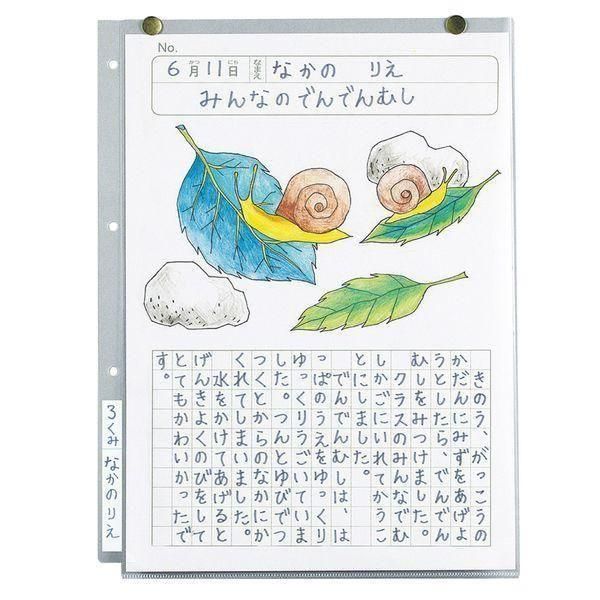 No.
6月11日 なまえ なかの りえ
がつ にち
みんなのでんでんむし
きのう、がっこうの
かだんにみずをあげよ
うとしたら、でんでん
むしをみつけました。
クラスのみんなでむ
しかごにいれてかうこ
とにしました。
でんでんむしは、は
っぱのうえをゆっくり
ゆっくりうごいていま
した。つんとゆびでつ
つくとからのなかにか
くれてしまいました。
水をかけてあげると
げんきよくのびをして
とてもかわいかったで
す。
3くみ なかの りえ